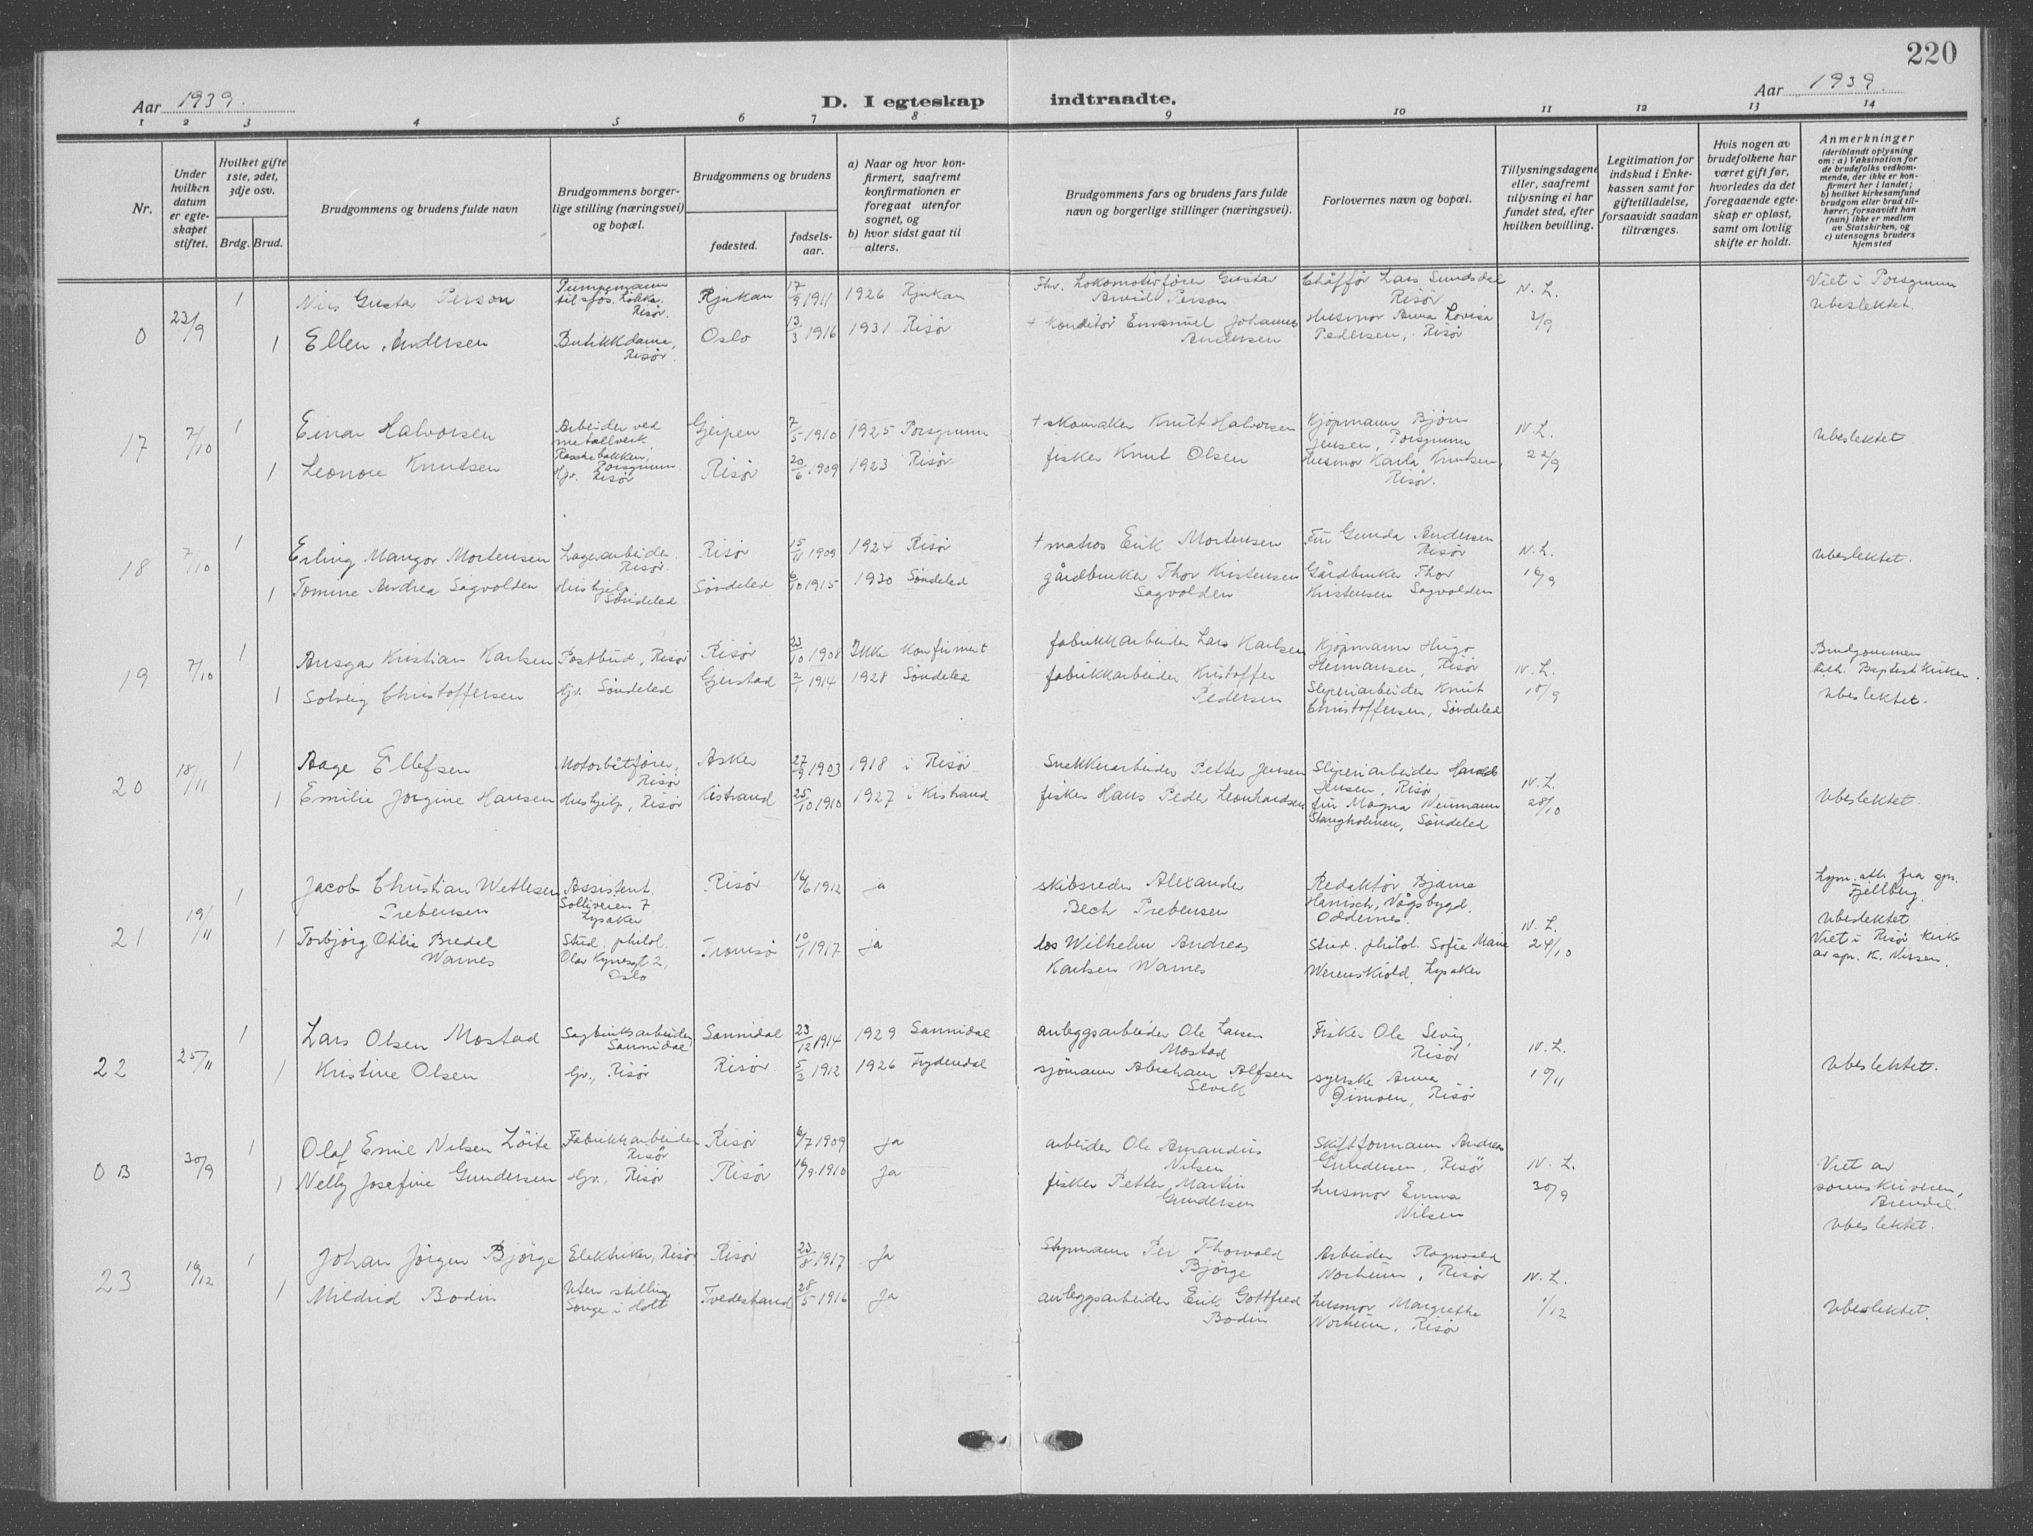 220
Aar 1939.
D. I egteskap indtraadte.
Aar 1939.
1 2 3 4 5 6 7 8 9 10 11 12 13 14
Nr.
Under hvilken datum er egteskapet stiftet.
Hvilket gifte 1ste, 2det, 3dje osv.
Brdg. Brud.
Brudgommens og brudens fulde navn
Brudgommens borgerlige stilling (næringsvei) og bopæl.
Brudgommens og brudens
fødested.
fødselsaar.
a) Naar og hvor konfirmert, saafremt konfirmationen er foregaat utenfor sognet, og
b) hvor sidst gaat til alters.
Brudgommens fars og brudens fars fulde navn og borgerlige stillinger (næringsvei).
Forlovernes navn og bopæl.
Tillysningsdagene eller, saafremt tillysning ei har fundet sted, efter hvilken bevilling.
Legitimation for indskud i Enkekassen samt for giftetilladelse, forsaavidt saadan tiltrænges.
Hvis nogen av brudefolkene har været gift før, hvorledes da det foregaaende egteskap er opløst, samt om lovlig skifte er holdt.
Anmerkninger
(deriblandt oplysning om: a) Vaksination for de brudefolks vedkommende, der ikke er konfirmert her i landet; b) hvilket kirkesamfund brudgom eller brud tilhører, forsaavidt han (hun) ikke er medlem av Statskirken, og c) utensogns bruders hjemsted
0 23/9 1 Nils Gustav Person Pumpemann til sjøs. Risør. Rjukan 17/9 1911 1926 Rjukan Fhv. Lokomotivfører Gustav Arvid Person Chåffør Lars Sundsdal Risør N. L. Viet i Porsgrunn ubeslektet.
1 Ellen Andersen Butikkdame, Risør. Oslo 13/3 1916 1931 Risør + Konditor Emanuel Johannes Andersen Husmor Anna Lovisa Pedersen, Risør 3/9
17 7/10 1 Einar Halvorsen Arbeider ved metallverk, Porsgrunn Gjerpen 7/5 1910 1925 Porsgrunn + skomaker Knut Halvorsen Kjøpmann Bjørn Jensen, Porsgrunn N. L. ubeslektet
1 Leonore Knutsen Hjv. Risør Risør 20/6 1909 1923 Risør fisker Knut Olsen Husmor Karla Knutsen, Risør. 22/9
18 7/10 1 Erling Mangor Mortensen Lagerarbeider. Risør. Risør 15/11 1909 1924 Risør + matros Erik Mortensen Frk Gunda Andersen Risør N. L. ubeslektet.
1 Tomine Andrea Sagvolden Hushjelp Søndeled Søndeled 6/10 1915 1930 Søndeled gårdbruker Thor Kristensen Sagvolden Gårdbruker Thor Kristensen Sagvolden 16/9
19 7/10 1 Ansgar Kristian Karlsen Postbud, Risør Risør 23/10 1908 Ikke konfirmert fabrikkarbeider Lars Karlsen Kjøpmann Hugo Hermansen, Risør N. L. Brudgommen tilh. Baptistkirken.
1 Solveig Christoffersen Hjv. Søndeled Gjerstad 2/1 1914 1928 Søndeled fabrikkarbeider Kristoffer Pedersen Sliperiarbeider Knut Christoffersen, Søndeled 18/9 ubeslektet.
20 18/11 1 Aage Ellefsen Motorbåtfører, Risør Asker 27/9 1903 1918 i Risør Snekkerarbeider Petter Jensen Sliperiarbeider Harald Jensen, Risør, N. L. ubeslektet.
1 Emilie Jorgine Hansen Hushjelp, Risør Kistrand 25/10 1910 1927 i Kistrand fisker Hans Peder Leonhardsen frk Magna Neumann Stangholmen, Søndeled 28/10
21 19/11 1 Jacob Christian Wetlesen Prebensen Assistent. Solliveien 7 Lysaker Risør 16/6 1912 ja skibsreder Alexander Bech Prebensen Redaktør Bjarne Hanisch, Vågsbygd. Oddernes. N. L. Lysn. att. fra spr. Fjellberg. ubeslektet
1 Torbjørg Otilie Bredal Warnes Stud. philol. Olav Kyrresgt 2, Oslo Tromsø 10/1 1917 ja los Wilhelm Andreas Karlsen Warnes Stud. philol. Sofie Marie Werenskiold, Lysaker 24/10 Viet i Risør Kirke av spr. K. Nilsen.
22 25/11 1 Lars Olsen Mostad Sagbruksarbeider, Sannidal Sannidal 23/12 1914 1929 Sannidal anleggsarbeider Ole Larsen Mostad Fisker Ole Sevig, Risør N. L. ubeslektet.
1 Kristine Olsen Hjv., Risør Risør 5/2 1912 1926 Frydendal sjømann Abraham Alfsen Sevik syerske Anna Gimoen, Risør 10/11
0 B 30/9 1 Olaf Emil Nilsen Löite Fabrikkarbeider Risør Risør 6/7 1909 ja arbeider Ole Amandus Nilsen Skiftformann Andreas Gundersen, Risør N. L. Viet av sorenskriveren, Arendal.
1 Nelly Josefine Gundersen Hjv., Risør Risør 16/9 1910 ja fisker Petter Martin Gundersen husmor Emma Nilsen 30/9 ubeslektet.
23 16/12 1 Johan Jörgen Bjørge Elektriker, Risør Risør 23/8 1917 ja Styrmann Per Thorvald Bjørge Arbeider Ragnvald Norheim, Risør N. L.
1 Mildrid Bodin Uten stilling Songe i Holt Tvedestrand 28/5 1916 ja anleggsarbeider Erik Gottfred Bodin husmor Margrethe Norheim, Risør 1/12 ubeslektet.